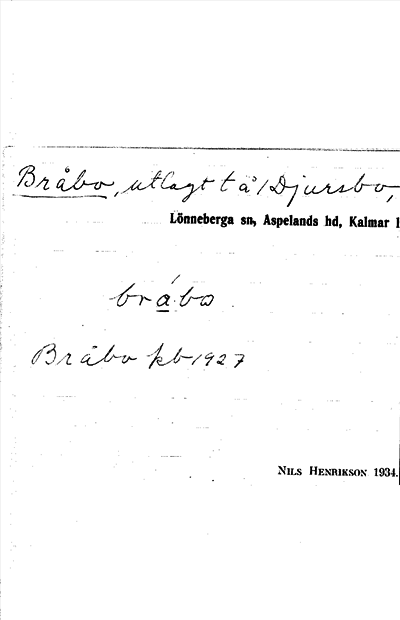 Bråbo, utlagt t å/Djursbo,
Lönneberga sn, Aspelands hd, Kalmar l
bråbω
Bråbo kb 1927
Nils Henrikson 1934.